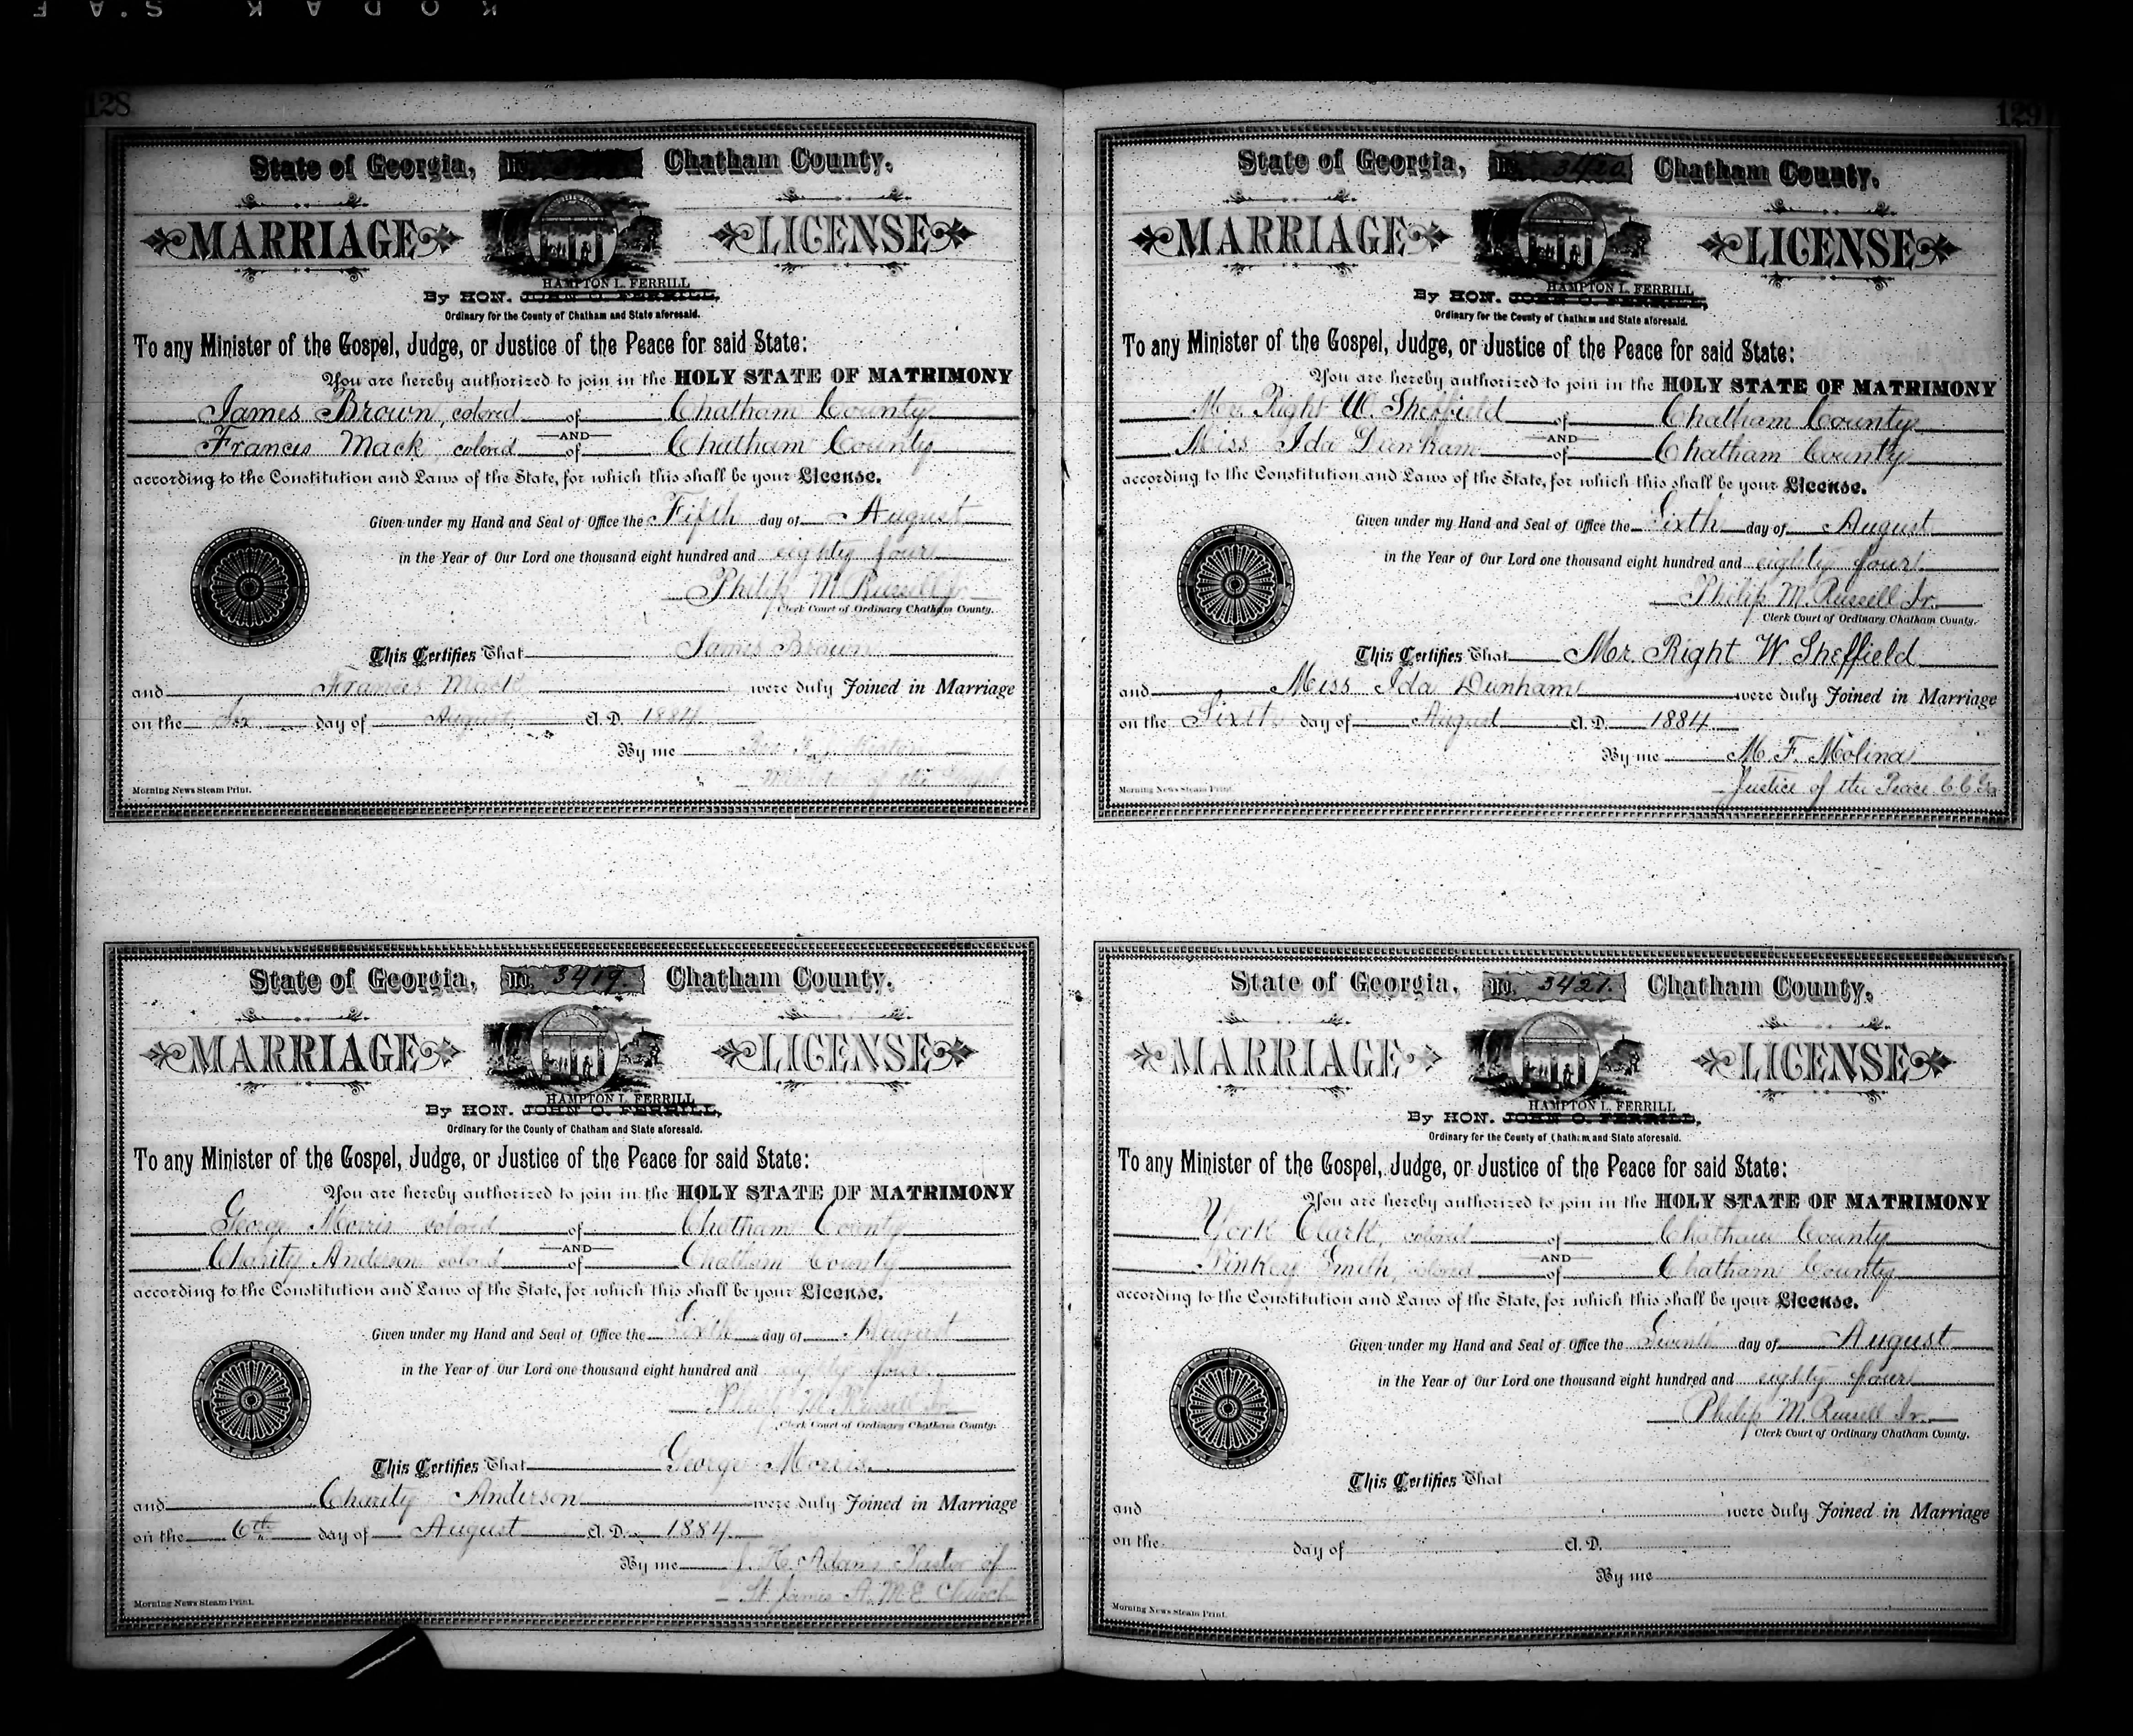 KODAK S.A F
128
State of Georgia, No. Chatham County.
MARRIAGE LICENSE
HAMPTON L. FERRILL
By HON. JOHN O. FERRILL,
Ordinary for the County of Chatham and State aforesaid.
To any Minister of the Gospel, Judge, or Justice of the Peace for said State:
You are hereby authorized to join in the HOLY STATE OF MATRIMONY
James Brown, colored of Chatham County
AND
Francis Mack, colored of Chatham County
according to the Constitution and Laws of the State, for which this shall be your License.
Given under my Hand and Seal of Office the Fifth day of August
in the Year of Our Lord one thousand eight hundred and eighty four
Philip M. Russell Jr.
Clerk Court of Ordinary Chatham County.
This Certifies That James Brown
and Frances Mack were duly Joined in Marriage
on the Six day of August A. D. 1884
By me Rev
Minister of the Gospel
Morning News Steam Print.
State of Georgia, No. 3419. Chatham County.
MARRIAGE LICENSE
HAMPTON L. FERRILL
By HON. JOHN O. FERRILL,
Ordinary for the County of Chatham and State aforesaid.
To any Minister of the Gospel, Judge, or Justice of the Peace for said State:
You are hereby authorized to join in the HOLY STATE OF MATRIMONY
George Morris colored of Chatham County
AND
Charity Anderson colored of Chatham County
according to the Constitution and Laws of the State, for which this shall be your License.
Given under my Hand and Seal of Office the Sixth day of August
in the Year of Our Lord one thousand eight hundred and eighty four
Philip M. Russell Jr.
Clerk Court of Ordinary Chatham County.
This Certifies That George Morris
and Charity Anderson were duly Joined in Marriage
on the 6th day of August A. D. 1884
By me H. Adams Pastor of
St. James A. M. E. Church
Morning News Steam Print.
129
State of Georgia, No. 3420. Chatham County.
MARRIAGE LICENSE
HAMPTON L. FERRILL
By HON. JOHN O. FERRILL,
Ordinary for the County of Chatham and State aforesaid.
To any Minister of the Gospel, Judge, or Justice of the Peace for said State:
You are hereby authorized to join in the HOLY STATE OF MATRIMONY
Mr. Right W. Sheffield of Chatham County
AND
Miss Ida Dunham of Chatham County
according to the Constitution and Laws of the State, for which this shall be your License.
Given under my Hand and Seal of Office the Sixth day of August
in the Year of Our Lord one thousand eight hundred and eighty four
Philip M. Russell Jr.
Clerk Court of Ordinary Chatham County.
This Certifies That Mr. Right W Sheffield
and Miss Ida Dunham were duly Joined in Marriage
on the Sixth day of August A. D. 1884
By me M. F. Molina
Justice of the Peace C. C. Ga
Morning News Steam Print.
State of Georgia, No. 3421. Chatham County.
MARRIAGE LICENSE
HAMPTON L. FERRILL
By HON. JOHN O. FERRILL,
Ordinary for the County of Chatham and State aforesaid.
To any Minister of the Gospel, Judge, or Justice of the Peace for said State:
You are hereby authorized to join in the HOLY STATE OF MATRIMONY
York Clark, colored of Chatham County
AND
Pinkey Smith, colored of Chatham County
according to the Constitution and Laws of the State, for which this shall be your License.
Given under my Hand and Seal of Office the Seventh day of August
in the Year of Our Lord one thousand eight hundred and eighty four
Philip M. Russell Jr.
Clerk Court of Ordinary Chatham County.
This Certifies That
and were duly Joined in Marriage
on the day of A. D.
By me
Morning News Steam Print.